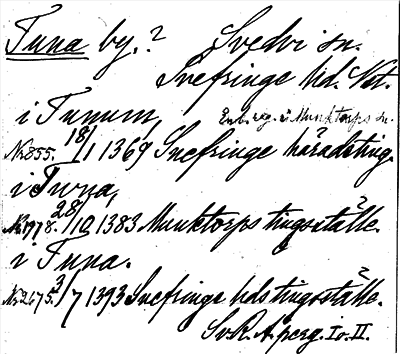 Tuna by. ? Svedvi sn.
Snefringe hd. Vst.
i Tunum, Enb. reg. i Munktorps sn.
No 855. 18/1 1369 Snefringe häradsting.
i Tuna,
No 1778. 28/10 1383 Munktorps tingsställe.
i Tuna.
No 2675. 3/7 1393 Snefringe hds tingsställe.
Sv.R.A. perg. I o. II.